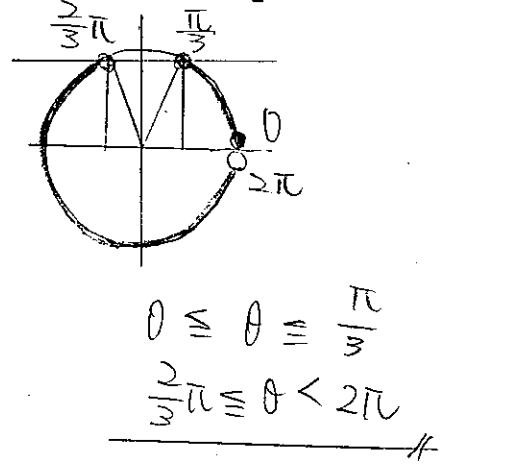 2/3 π π/3
0
2π
0 ≦ θ ≦ π/3
2/3 π ≦ θ < 2π